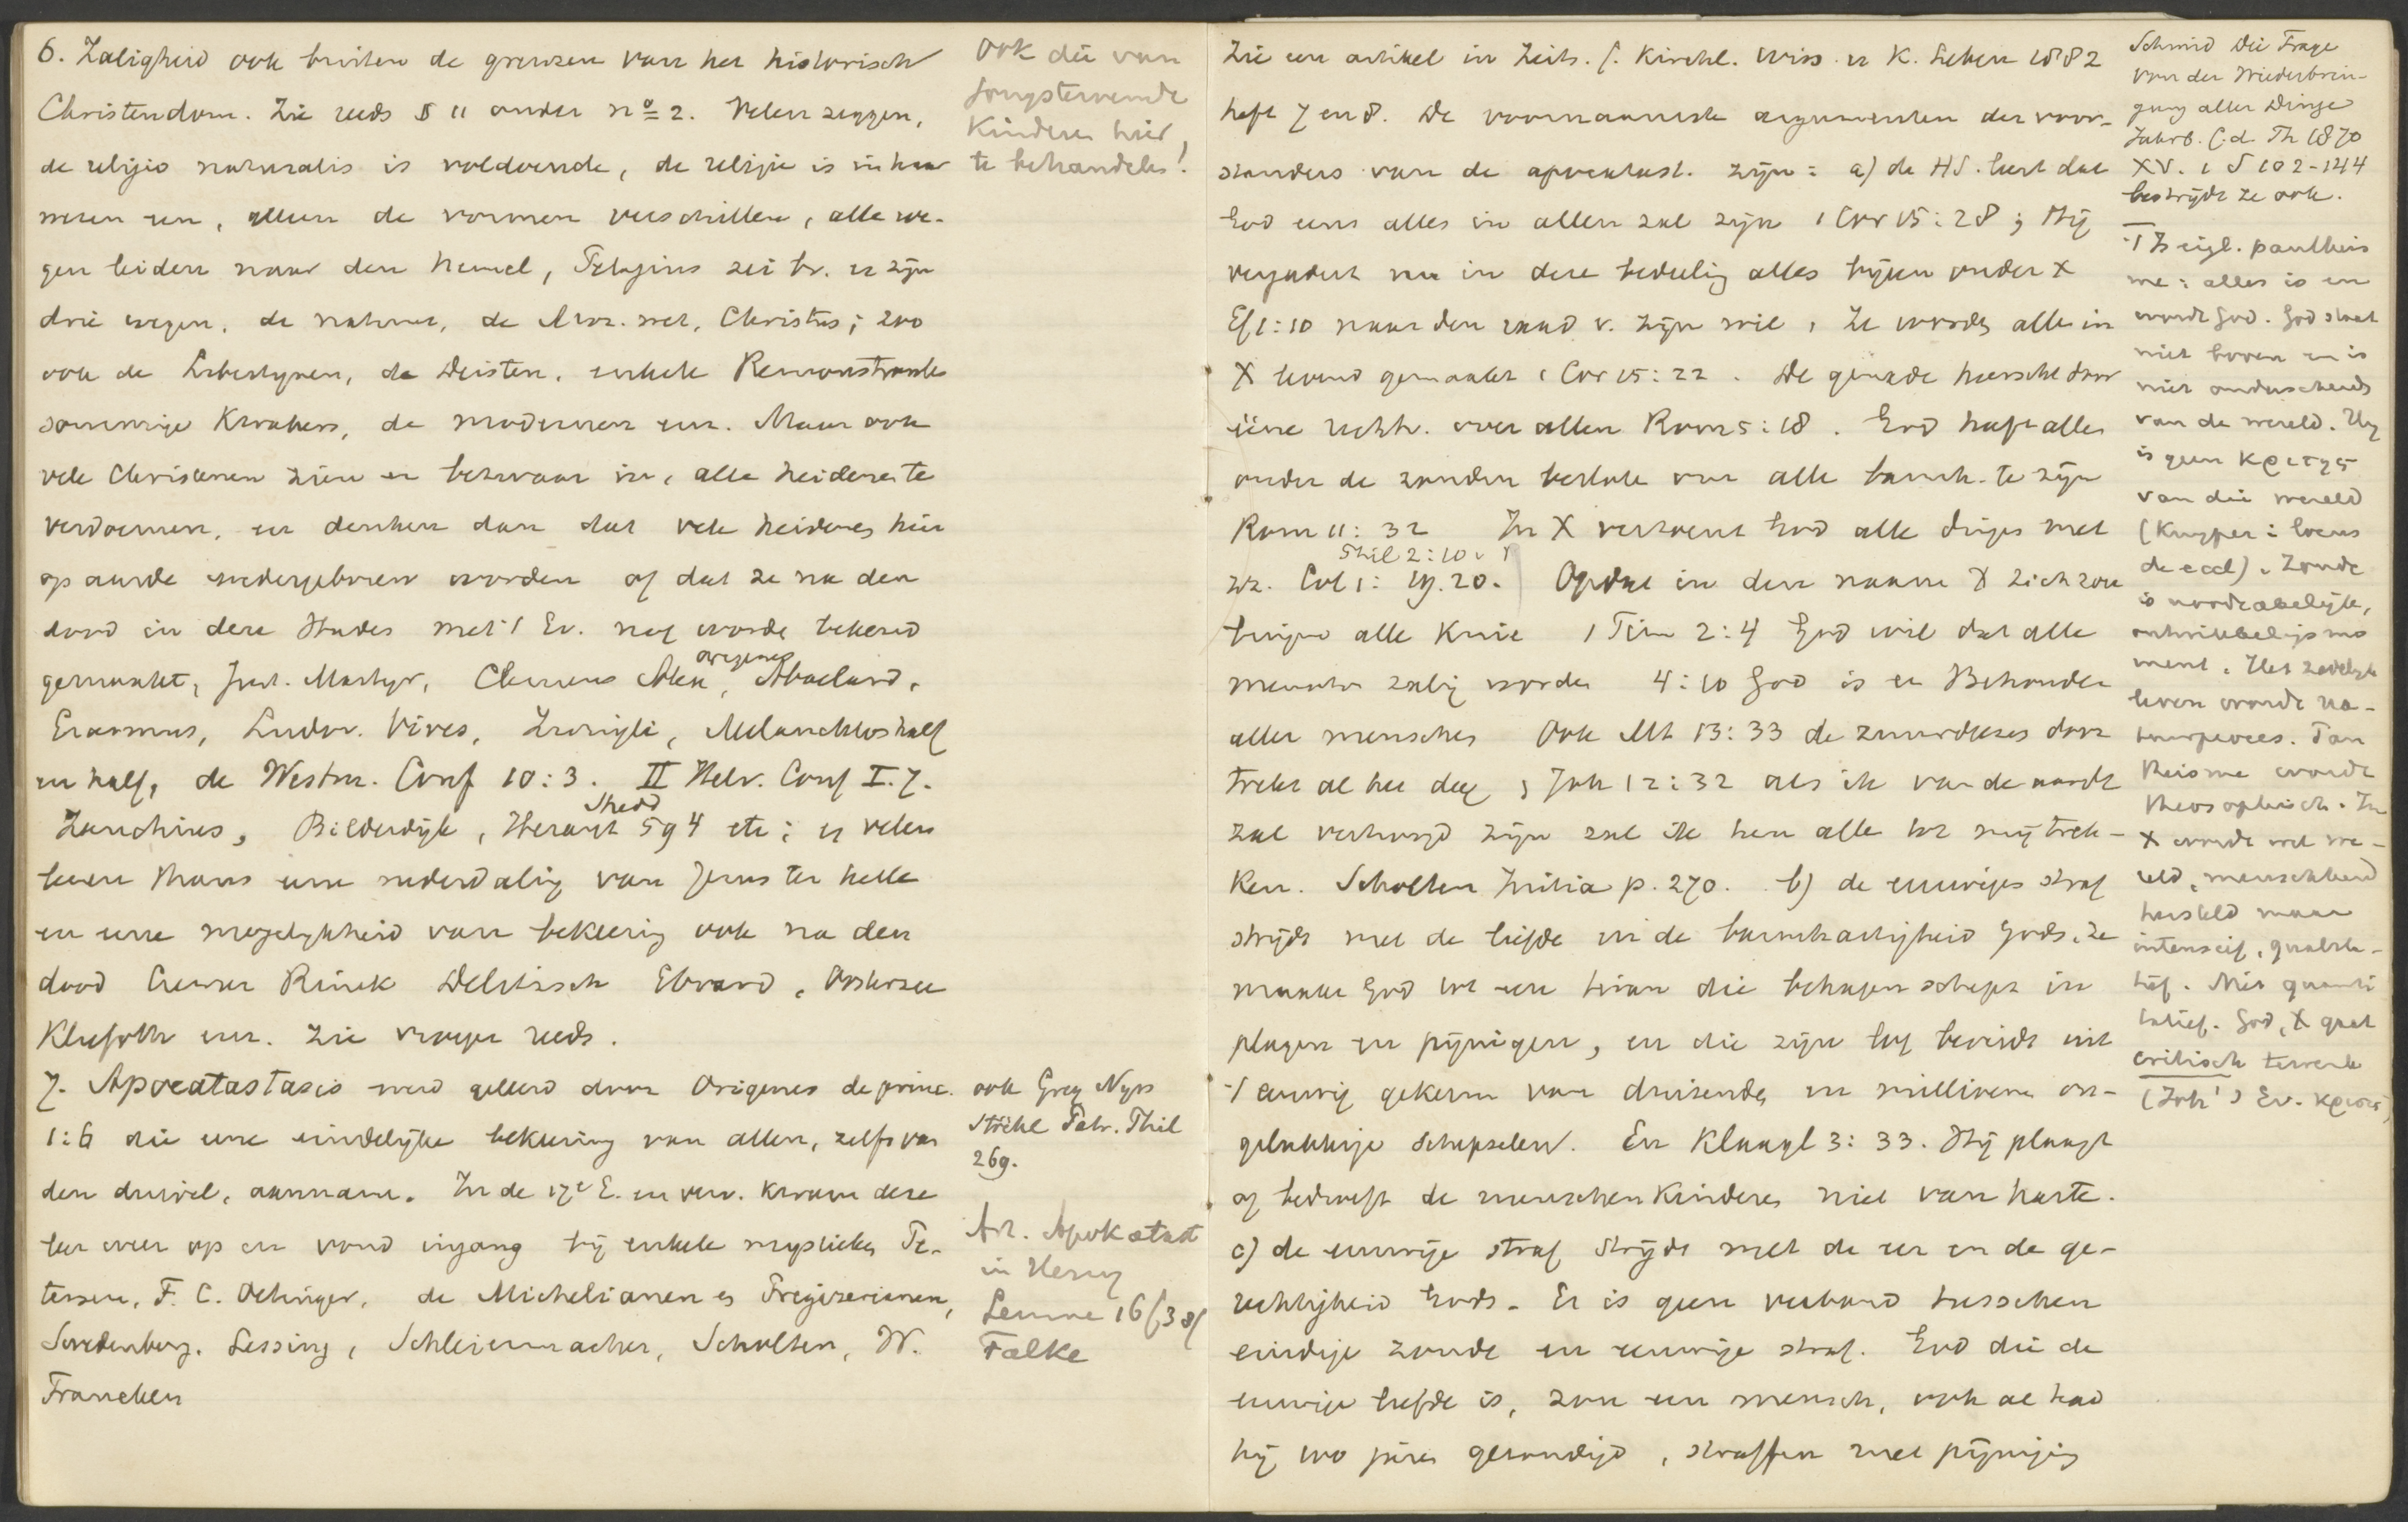 6. Zaligheid ook buiten de grenzen van het historisch
Christendom. Zie reeds § 11 onder no 2. Velen zeggen,
de religio naturalis is voldoende, de religie is in haar
wezen een, alleen de vormen verschillen, alle we-
gen leiden naar den hemel, Pelagius zei bv. er zijn
drie wegen, de natuur, de Moz. wet, Christus; zoo
ook de Libertijnen, de Deisten, enkele Remonstranten
sommige Kwakers, de modernen enz. Maar ook
vele Christenen zien er bezwaar in, alle heidenen te
verdoemen, en denken dan dat vele heidenen hier
op aarde wedergeboren worden of dat ze na den
dood in den Hades met 't Ev. nog worde bekend
gemaakt, Just. Martyr, Clemens Alex, Origenes, Abaelard,
Erasmus, Ludov. Vives, Zwingli, Melanchton half
en half, de Westm. Conf 10:3. II Helv. Conf I. 7.
Zanchius, Bilderdijk, Shedd, Heraut 594 etc; en velen
leeren thans eene nederdaling van Jezus ter helle
en eene mogelijkheid van bekeering ook na den
dood Cremer Rinck Delitzsch Ebrard, Oosterzee
Kliefoth enz. Zie vroeger reeds.
7. Apocatastasis werd geleerd door Origenes de princ.
1:6 die eene eindelijke bekeering van allen, zelfs van
den duivel, aannam. In de 17e E. en verv. kwam deze
leer weer op en vond ingang bij enkele mystieken Pe-
tersen, F. C. Oetinger, de Michelianen en Pregizerianen,
Swedenborg, Lessing, Schleiermacher, Scholten, W.
Francken
Ook die van
jongstervende
Kinderen hier
te behandelen!
ook Greg Nyss
Stöckl Patr. Phil
269.
Art. Apokatast
in Herzog
Lemme 16
Falke
Zie een artikel in Zeits. f. Kirchl. Wiss. u K. Leben 1882
heft 7 en 8. De voornaamste argumenten der voor-
standers van de apocatast. zijn: a) de HS. leert dat
God eens alles in allen zal zijn 1 Cor 15:28; Hij
vergadert nu in deze bedeeling alles bijeen onder X
Ef 1:10 naar den raad v. zijn wil, Ze worden allen in
X levend gemaakt 1 Cor 15:22. De genade heerscht door
éene rechtv. over allen Rom 5:18. God heeft allen
onder de zonden besloten om alle barmh. te zijn
Rom 11:32 In X verzoent God alle dingen met
Phil 2:10
zz. Col 1:19.20. Opdat in den naam X zich zou
buigen alle Knie 1 Tim 2:4 God wil dat alle
menschen zalig worden 4:10 God is een Behouder
aller menschen Ook Mt 13:33 de zuurdeesem door
trekt al het deeg; Joh 12:32 als ik van de aarde
zal verhoogd zijn zal ik hen alle tot mij trek-
ken. Scholten Initia p. 270. b) de eeuwige straf
strijdt met de liefde en de barmhartigheid Gods, ze
maakt God tot een tiran die behagen schept in
plagen en pijnigen, en die zijn lof bereidt uit
't eeuwig gekerm van duizenden en millioenen on-
gelukkige schepselen. En Klaagl 3:33. Hij plaagt
of bedroeft de menschenkinderen niet van harte.
c) de eeuwige straf strijdt met de eer en de ge-
rechtigheid Gods. Er is geen verband tusschen
eindige zonde en eeuwige straf. God die de
eeuwige liefde is, zou een mensch, ook al had
hij 100 jaren gezondigd, straffen met pijniging
Schmid Die Frage
von der Wiederbrin-
gung aller Dinge
Jahrb. f. d. Th 1870
XV. 1 S 102-144
bestrijdt ze ook.
't Is eigl. pantheis
me: alles is en
wordt God. God staat
niet boven en is
niet onderscheiden
van de wereld. Hij
is geen κριτης
van die wereld
(Kuyper: locus
de eccl). Zonde
is noodzakelijk,
ontwikkelingsmo
ment. Het zedelijk
leven wordt na-
tuurproces. Pan
theisme wordt
theosophisch. In
X wordt wel we-
reld, menschheid
hersteld maar
intensief, qualita-
tief. Niet quanti
tatief. God, X gaat
critisch te werk
(Joh's Ev. κρισις)